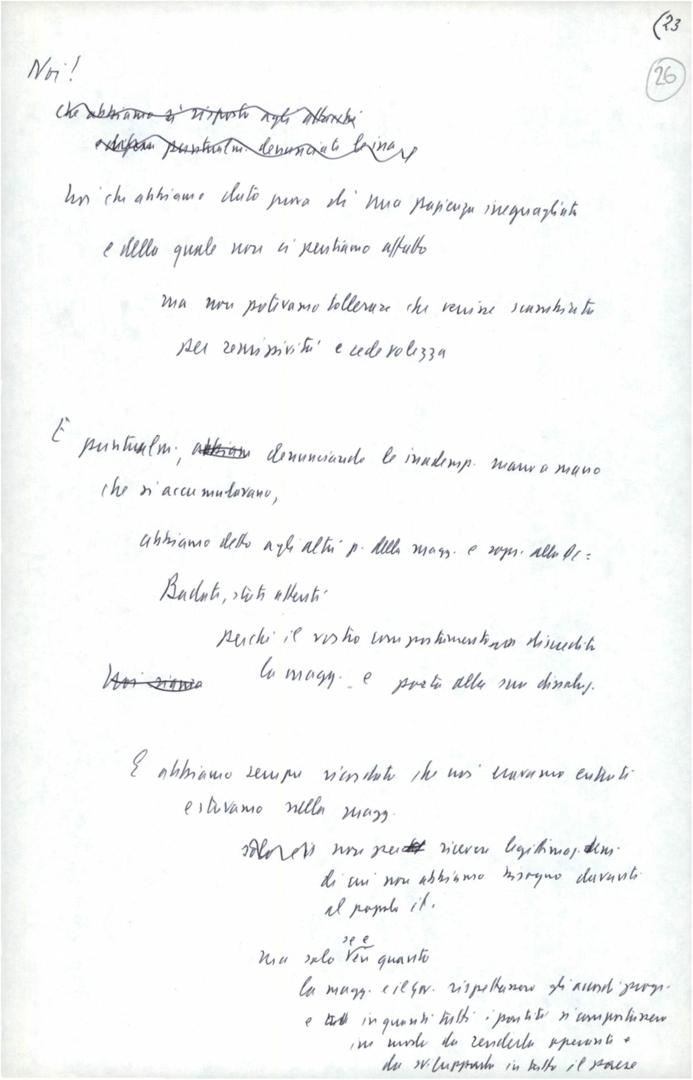 (23
26
Noi!
che abbiamo sì risposto agli attacchi
puntualm. denunciato le ina
Noi che abbiamo dato prova di una pazienza ineguagliata
e della quale non ci pentiamo affatto
ma non potevamo tollerare che venisse scambiata
per remissività e cedevolezza
E puntualm., abbiam denunciando le inademp. mano a mano
che si accumulavano,
abbiamo detto agli altri p. della magg. e sopr. alla Dc =
Badate, state attenti
perché il vostro comportamento discredita
la magg. e porta alla sua dissoluz.
Noi siamo
E abbiamo sempre ricordato che noi eravamo entrati
e stavamo nella magg.
solo non per ricevere legittimaz. dem.
di cui non abbiamo bisogno davanti
al popolo it.
se e
ma solo in quanto
la magg. e il gov. rispettassero gli accordi progr.
e in quanto tutti i partiti si comportassero
in modo da renderla operante e
da svilupparla in tutto il paese